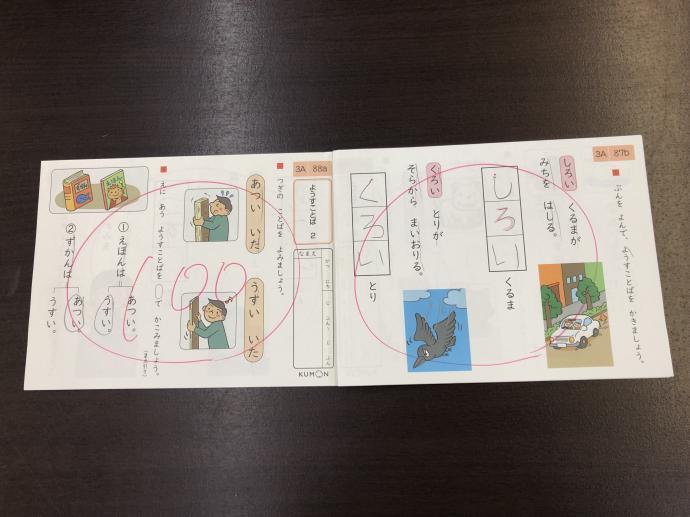 3A 87b
ぶんを よんで、ようすことばを かきましょう。
しろい くるまが
みちを はしる。
しろい くるま
くろい とりが
そらから まいおりる。
くろい とり
3A 88a
ようすことば 2
なまえ
がつ にち
じ ふん〜 じ ふん
KUMON
つぎの ことばを よみましょう。
あつい いた
うすい いた
えに あう ようすことばを ○で かこみましょう。
えほん
①えほんは
あつい。
うすい。
②ずかんは
あつい。
うすい。
100